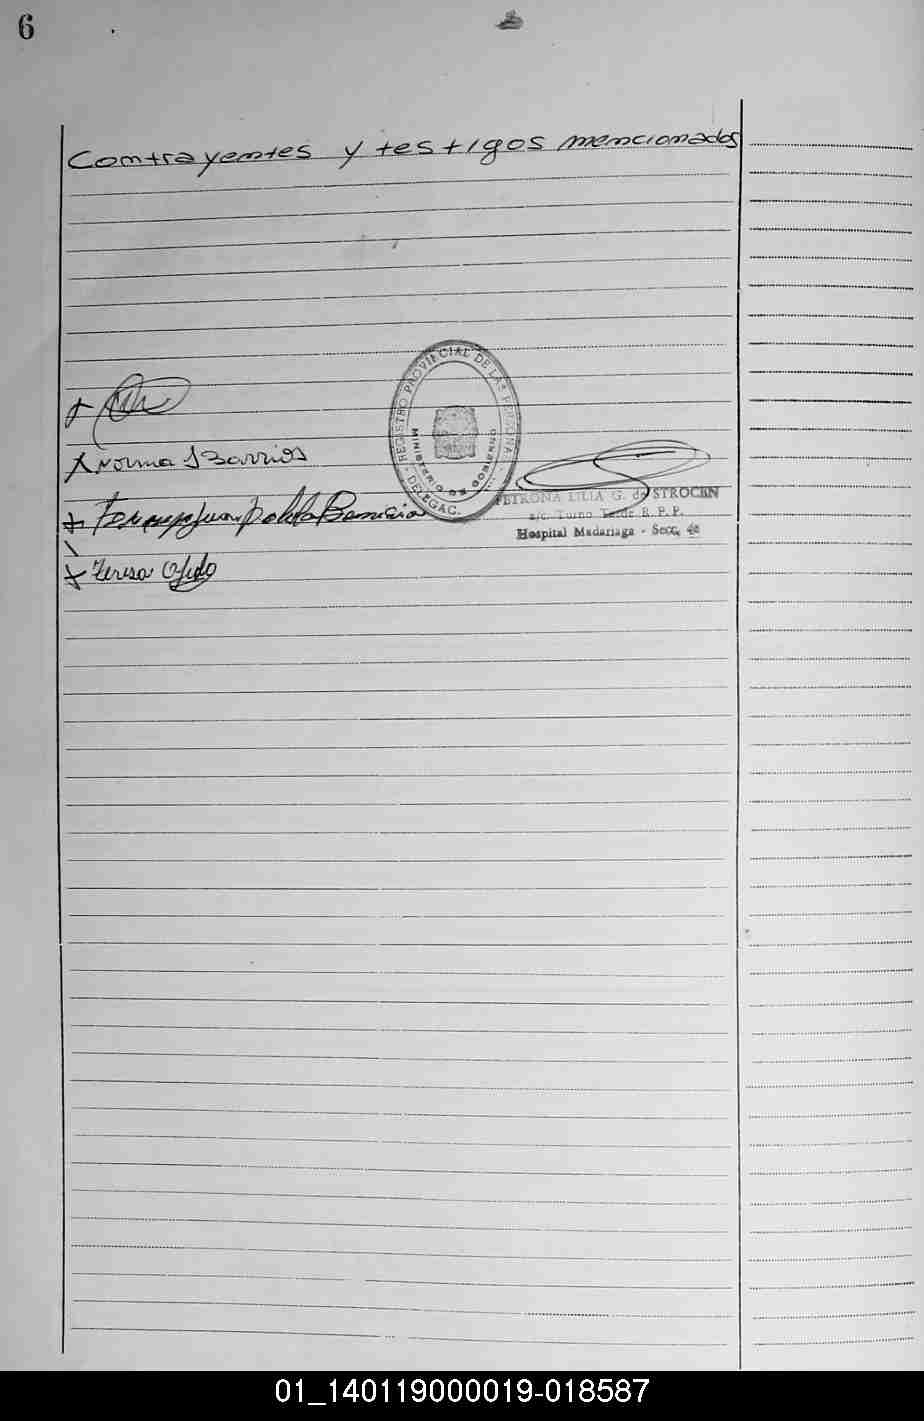 6
Contrayentes y testigos mencionados
REGISTRO PROVINCIAL DE LAS PERSONA
MINISTERIO DE GOBIERNO
DELEGAC.
Norma I Barrios
PETRONA LILIA G. de STROCEN
a/c. Turno Tarde R. P. P.
Hospital Madariaga - Secc. 4ª
Teresa
01_140119000019-018587